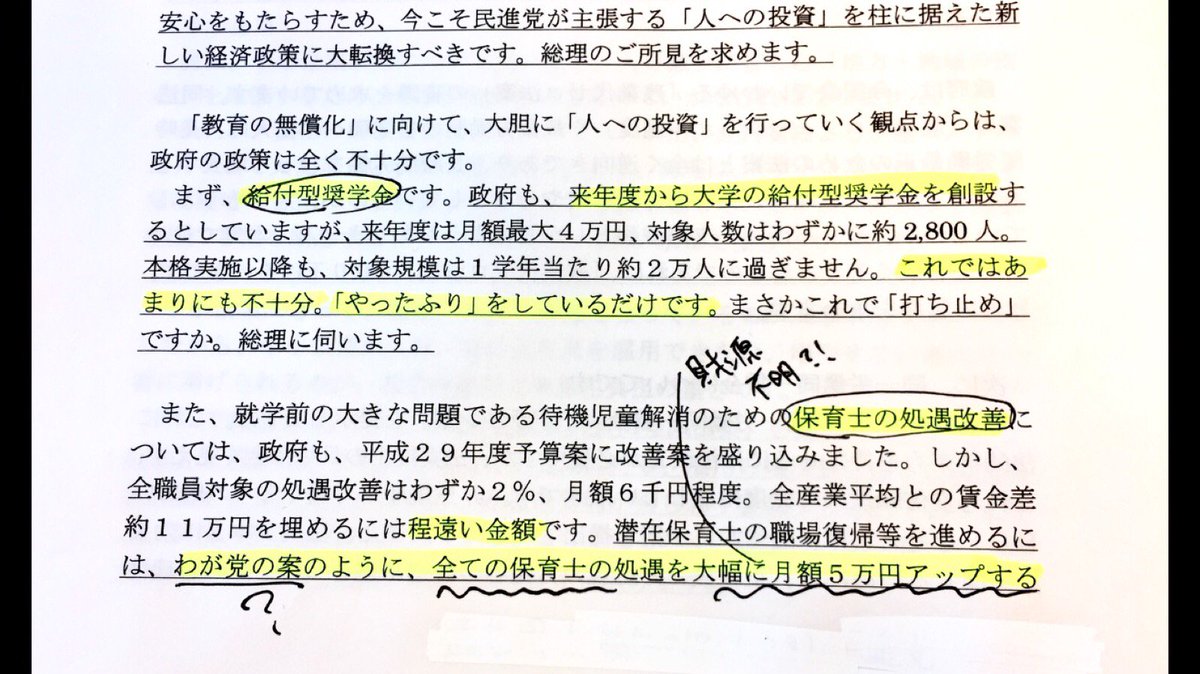 安心をもたらすため、今こそ民進党が主張する「人への投資」を柱に据えた新
しい経済政策に大転換すべきです。総理のご所見を求めます。
「教育の無償化」に向けて、大胆に「人への投資」を行っていく観点からは、
政府の政策は全く不十分です。
まず、給付型奨学金です。政府も、来年度から大学の給付型奨学金を創設す
るとしていますが、来年度は月額最大４万円、対象人数はわずかに約 2,800 人。
本格実施以降も、対象規模は１学年当たり約２万人に過ぎません。これではあ
まりにも不十分。「やったふり」をしているだけです。まさかこれで「打ち止め」
ですか。総理に伺います。
財源
不明?!
また、就学前の大きな問題である待機児童解消のための保育士の処遇改善に
ついては、政府も、平成２９年度予算案に改善案を盛り込みました。しかし、
全職員対象の処遇改善はわずか２％、月額６千円程度。全産業平均との賃金差
約１１万円を埋めるには程遠い金額です。潜在保育士の職場復帰等を進めるに
は、わが党の案のように、全ての保育士の処遇を大幅に月額５万円アップする
?